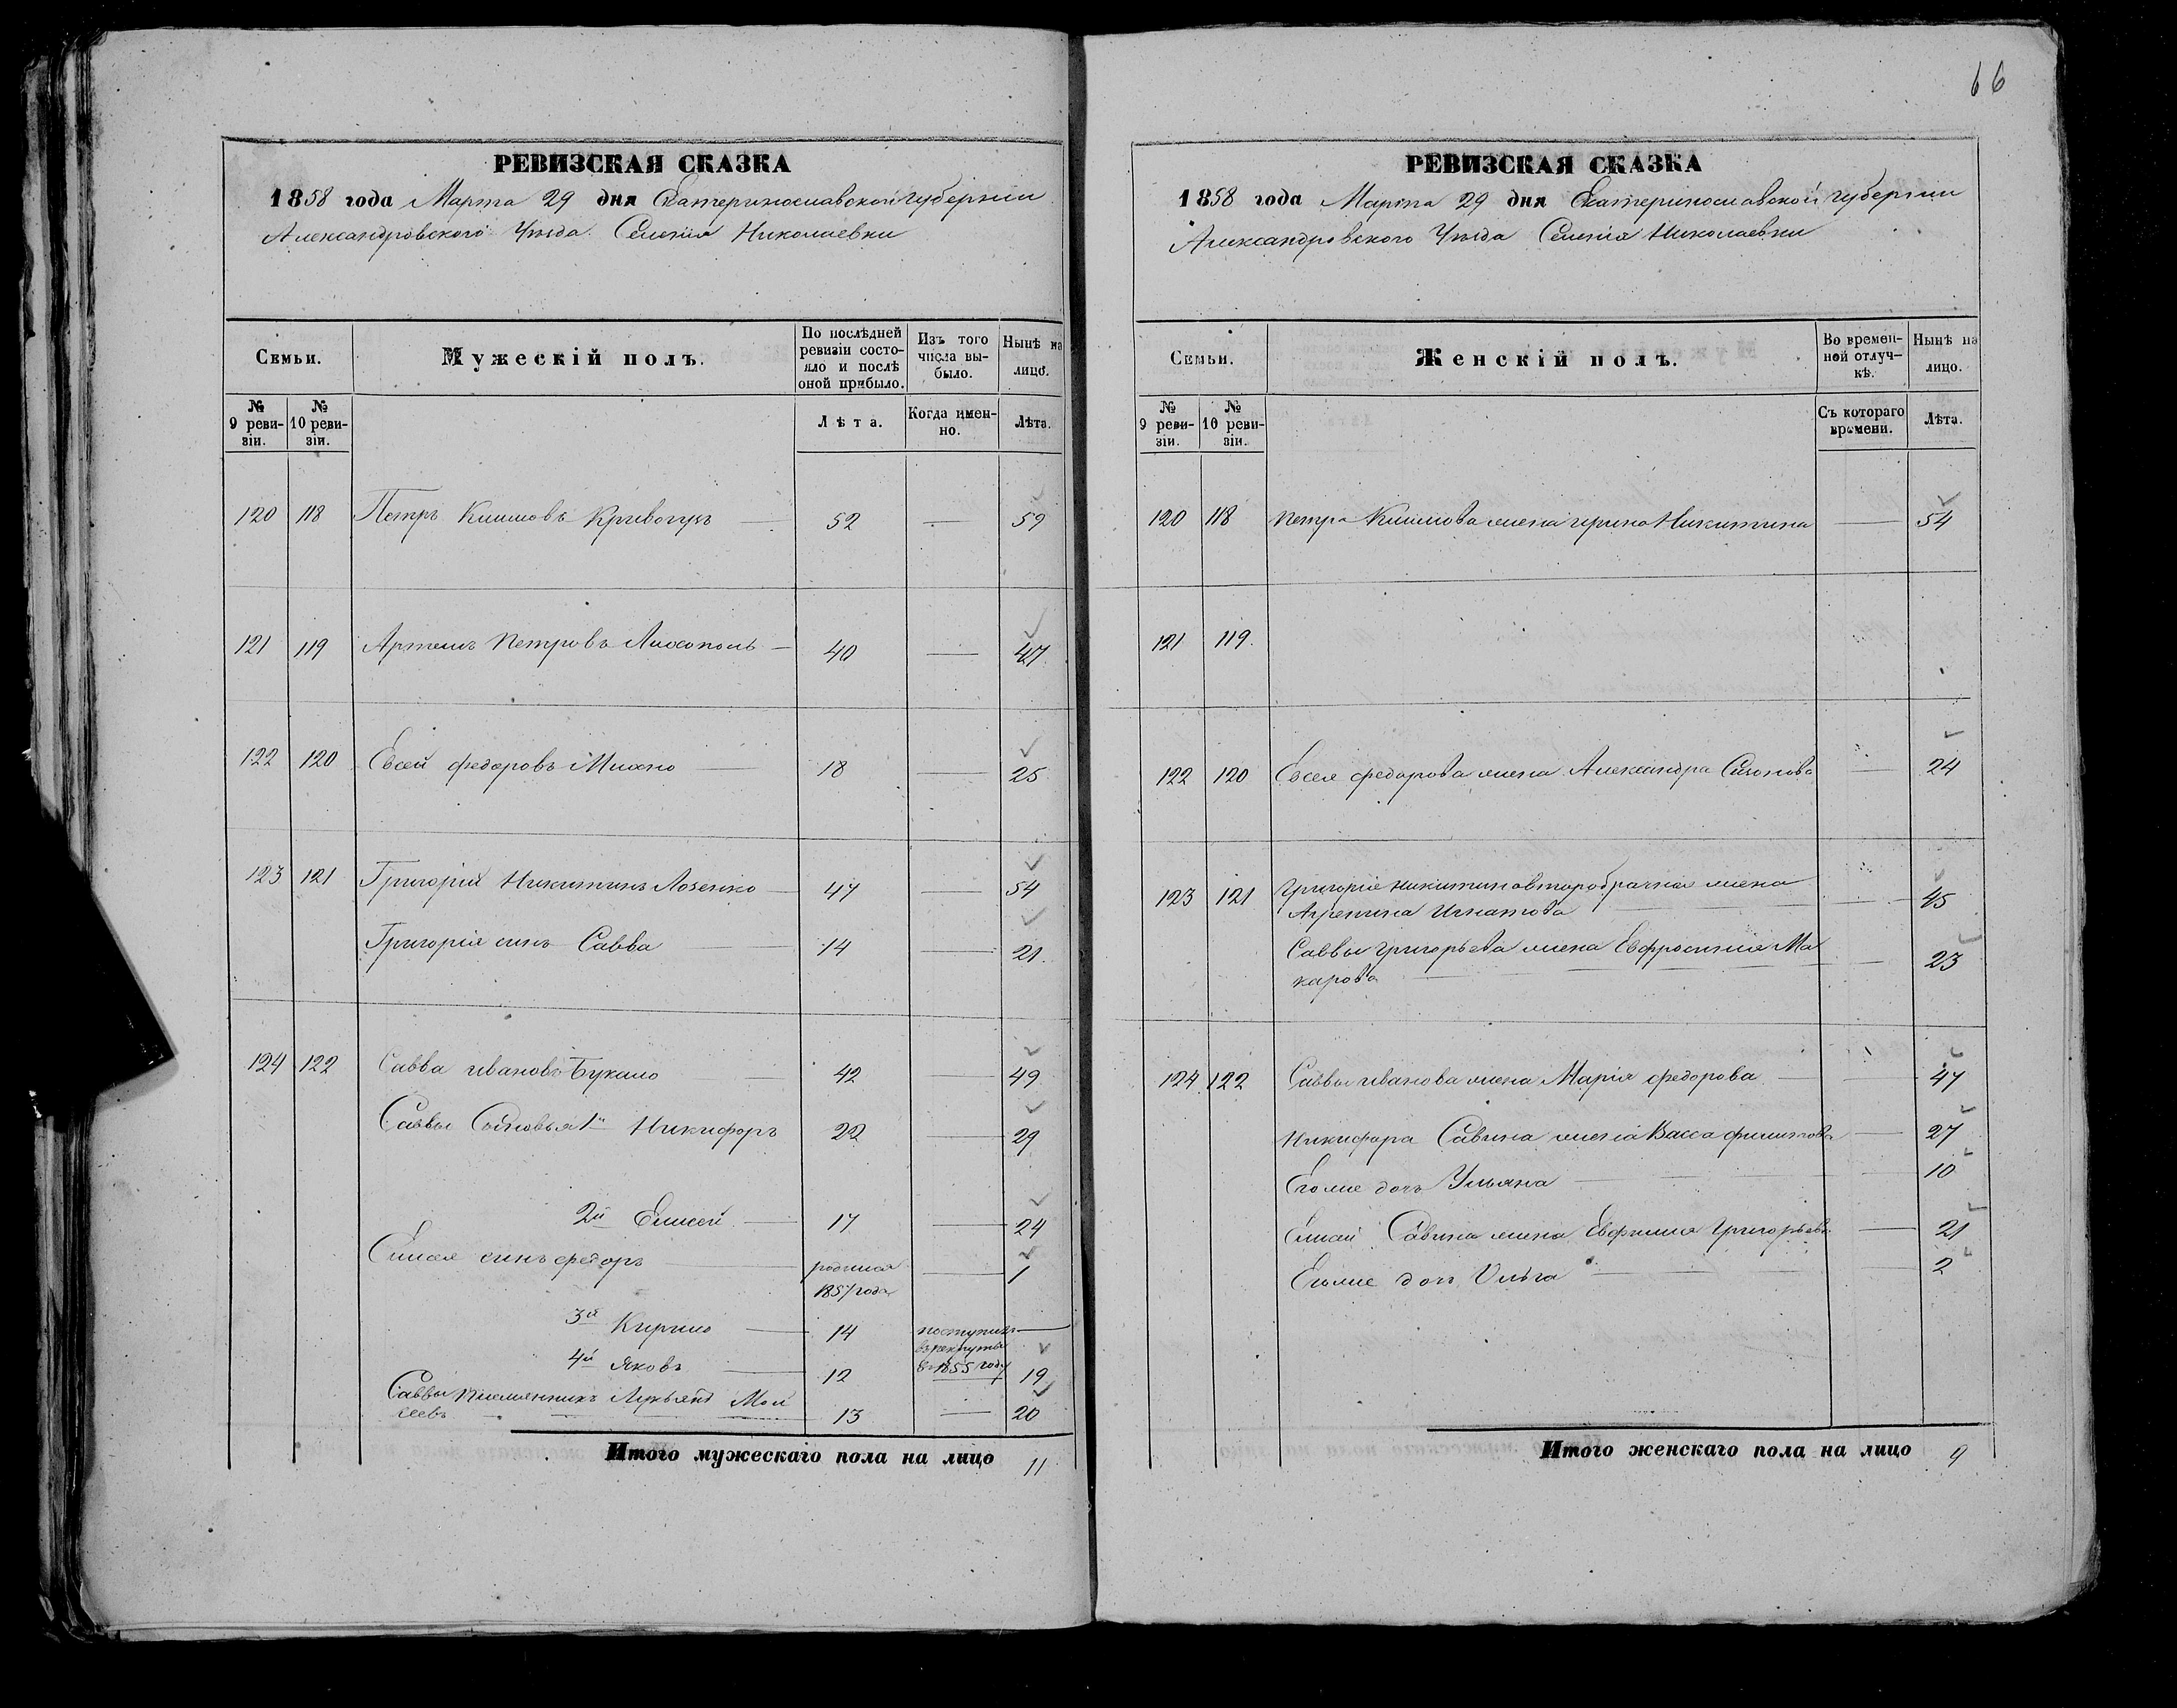 66
РЕВИЗСКАЯ СКАЗКА
1858 года Марта 29 дня Екатеринославской губернии
Александровского Уъзда Селенія Николаевки
Семьи.
Мужескій полъ.
По послѣдней ревизіи состояло и послѣ оной прибыло.
Изъ того числа выбыло.
Нынѣ на лицо.
№ 9 ревизіи.
№ 10 ревизіи.
Лѣта.
Когда именно.
Лѣта.
120 118 Петръ Климовъ 52 — 59
121 119 Артемъ Петровъ 40 — 47
122 120 Евсей федоровъ Михно 18 — 25
123 121 Григорій Никитинъ Лозенко 47 — 54
Григорія синъ Савва 14 — 21
124 122 Савва ивановъ Букало 42 — 49
Саввы Сыновья 1й Никифоръ 22 — 29
2й Елисей 17 — 24
Елисея синъ федоръ родился 1857 года — 1
3й Кирило 14 поступилъ в рекруты в 1855 году —
4й яковъ 12 19
Саввы племянникъ Лукьянъ Мои
сеевъ 13 — 20
Итого мужескаго пола на лицо 11
РЕВИЗСКАЯ СКАЗКА
1858 года Марта 29 дня Екатеринославской губернии
Александровского Уъзда Селенія Николаевки
Семьи.
Женскій полъ.
Во временной отлучкѣ.
Нынѣ на лицо.
№ 9 ревизіи.
№ 10 ревизіи.
Съ котораго времени.
Лѣта.
120 118 петра Климова жена ирина Никитина — 54
121 119.
122 120 Евсея федорова жена Александра — 24
123 121 григорія никитина второбрачная жена
Агрепина Игнатова — 45
Саввы григорьева жена Евфросинія Ма
карова — 23
124 122 Саввы иванова жена Марія федорова — 47
Никифора Савина жена Васса филипова — 27
Егоже дочь Ульяна — 10
Елисей Савина жена Евфимия Григорьева — 21
Егоже дочь Ольга — 2
Итого женскаго пола на лицо 9